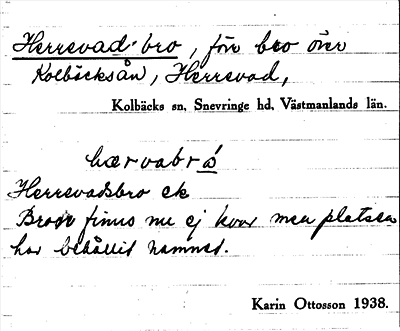 Herrevad-bro, förr bro över
Kolbäcksån, Herrevad,
Kolbäcks sn, Snevringe hd, Västmanlands län.
hærvabró
Herrevadsbro ek
Bron finns nu ej kvar men platsen
har behållit namnet.
Karin Ottosson 1938.